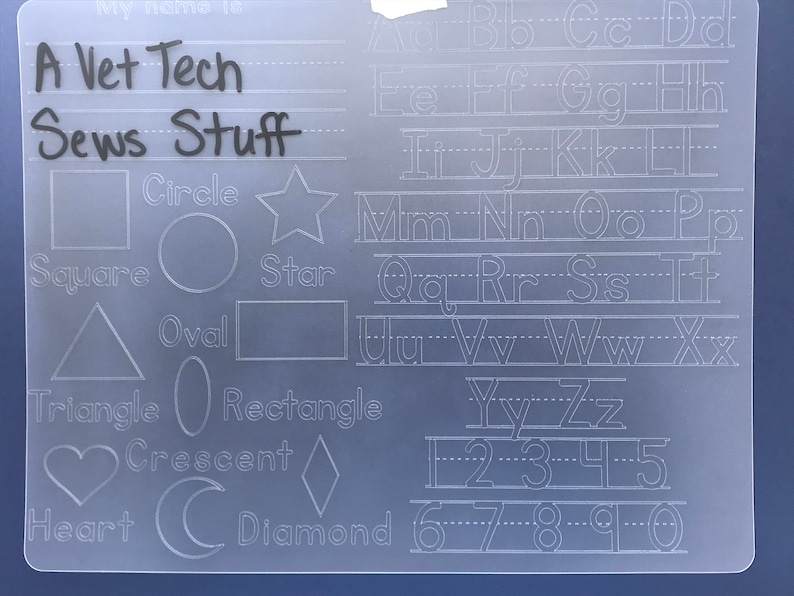 My name is
A Vet Tech
Sews Stuff
Circle
Square Star
Oval
Triangle Rectangle
Crescent
Heart Diamond
Aa Bb Cc Dd
Ee Ff Gg Hh
Ii Jj Kk Ll
Mm Nn Oo Pp
Qq Rr Ss Tt
Uu Vv Ww Xx
Yy Zz
1 2 3 4 5
6 7 8 9 0